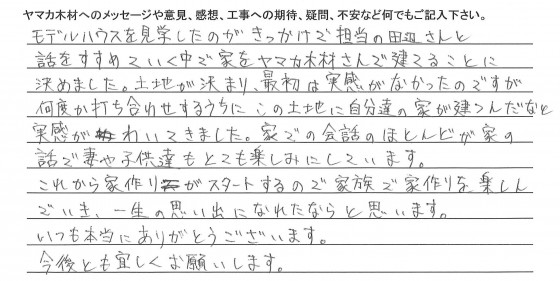 ヤマカ木材へのメッセージや意見、感想、工事への期待、疑問、不安など何でもご記入下さい。
モデルハウスを見学したのがきっかけで担当の田辺さんと
話をすすめていく中で家をヤマカ木材さんで建てることに
決めました。土地が決まり、最初は実感がなかったのですが
何度か打ち合わせするうちにこの土地に自分達の家が建つんだなと
実感がわいてきました。家での会話のほとんどが家の
話で妻や子供達もとても楽しみにしています。
これから家作りがスタートするので家族で家作りを楽しん
でいき、一生の思い出になれたならと思います。
いつも本当にありがとうございます。
今後とも宜しくお願いします。